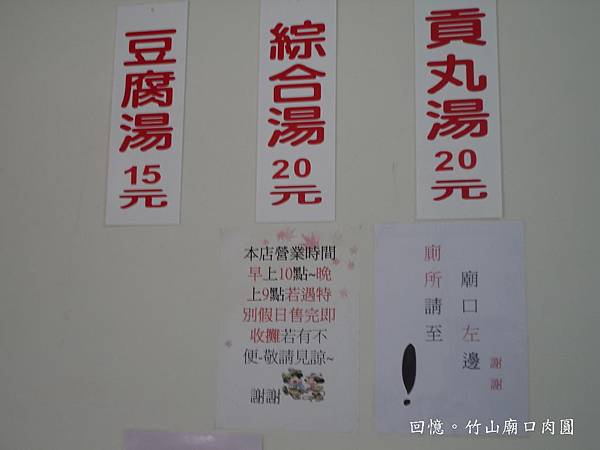 豆腐湯
15元
綜合湯
20元
貢丸湯
20元
本店營業時間
早上10點~晚
上9點若遇特
別假日售完即
收攤若有不
便-敬請見諒~
謝謝
廁所請至
廟口左邊
謝謝
!
回憶。竹山廟口肉圓